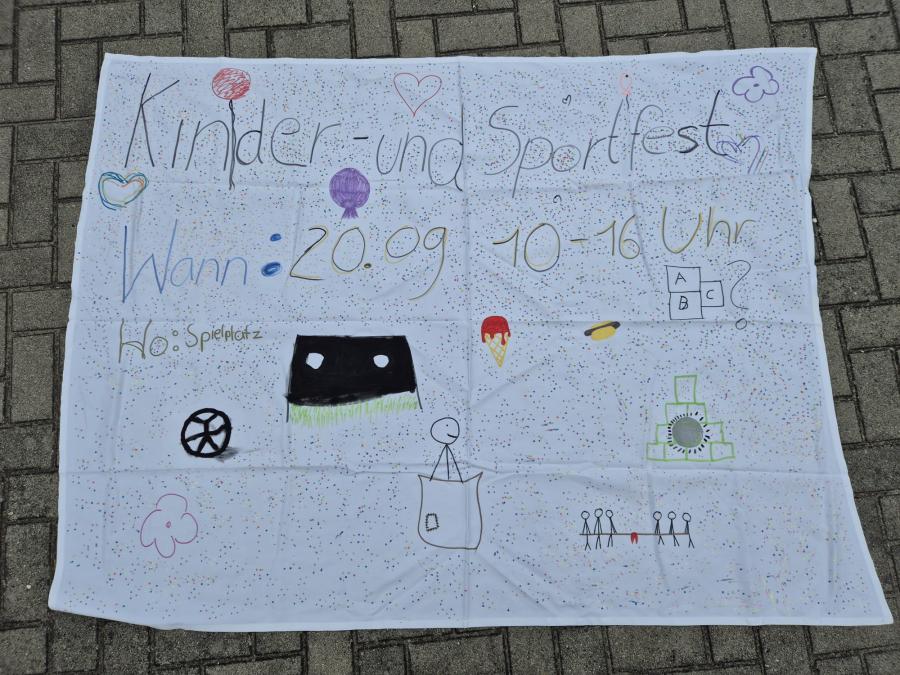 Kinder-und Sportfest
Wann: 20.09 10-16 Uhr
A
B C ?
Wo: Spielplatz